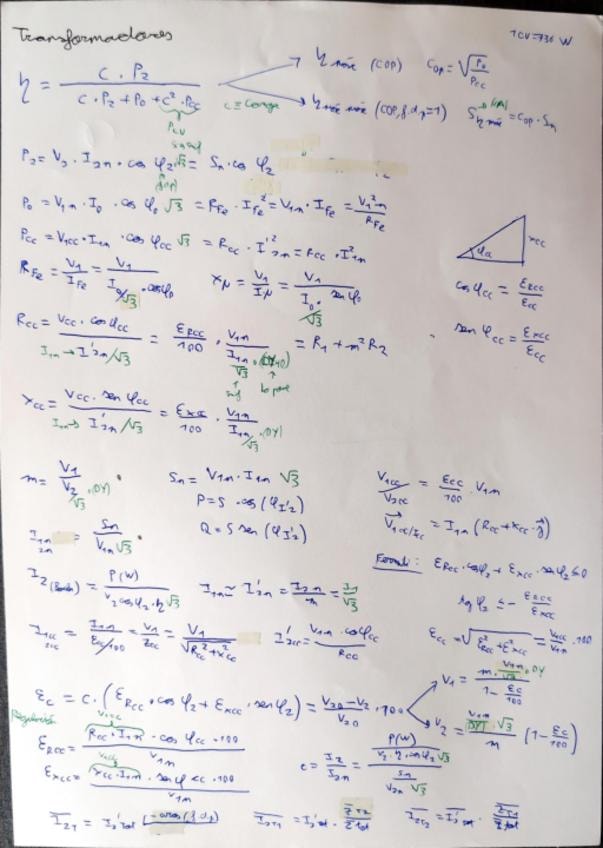 Transformadores
1CV=736 W
η = C · P₂ / (C · P₂ + P₀ + C² · Pcc)
C = Carga
η máx (COP) COP = √(P₀/Pcc)
η máx máx (COP, f.d.p=1) Sη máx = COP · Sn
P₂ = V₂ · I₂n · cos φ₂ √3 = Sn · cos φ₂
P₀ = V₁n · I₀ · cos φ₀ √3 = R_Fe · I_Fe² = V₁n · I_Fe = V₁n² / R_Fe
Pcc = V₁cc · I₁n · cos φcc √3 = Rcc · I'₂n² = Rcc · I₁n²
Xcc
φcc
R_Fe = V₁ / I_Fe = V₁ / (I₀/√3 · cos φ₀) Xμ = V₁ / Iμ = V₁ / (I₀/√3 · sen φ₀)
cos φcc = εRcc / εcc
Rcc = Vcc · cos φcc / (I₁n → I'₂n/√3) = εRcc/100 · V₁n / (I₁n/√3) = R₁ + m² R₂
sen φcc = εxcc / εcc
Xcc = Vcc · sen φcc / (I₁n → I'₂n/√3) = εxcc/100 · V₁n / (I₁n/√3) (DY)
m = V₁ / V₂ /√3 (DY) Sn = V₁n · I₁n √3
P = S · cos (φI'₂)
Q = S sen (φI'₂)
V₁cc/V₂cc = εcc/100 · V₁n
V₁cc/Icc = I₁n (Rcc + Xcc · j)
I₁n/₂n = Sn / (V₁n √3)
Ferranti: εRcc · cos φ₂ + εxcc · sen φ₂ ≤ 0
tg φ₂ ≤ - εRcc / εxcc
I₂ = P(W) / (V₂ cos φ₂ · η √3) I₁n ≃ I'₂n = I₂n / m = I₁ / √3
I₁cc/₂cc = I₁n / (εcc/100) = V₁ / Zcc = V₁ / √(R²cc + X²cc) I'₂cc = V₁n · cos φcc / Rcc
εcc = √(ε²Rcc + ε²xcc) = V₁cc / V₁n · 100
εc = C · (εRcc · cos φ₂ + εxcc · sen φ₂) = (V₂₀ - V₂) / V₂₀ · 100
V₁ = m · V₁n · DY / (1 - εc/100)
V₂ = V₁n √3 / m (1 - εc/100)
Regulación
εRcc = Rcc · I₁n · cos φcc · 100 / V₁n
εxcc = Xcc · I₁n · sen φcc · 100 / V₁n
C = I₂ / I₂n = (P(W) / (V₂ · η · cos φ₂ √3)) / (Sn / (V₂n √3))
I₂T = I'₂tot |-arcos (f.d.p) I₂T₁ = I'₂tot · ZT₂ / Ztot I₂T₂ = I'₂tot · ZT₁ / Ztot